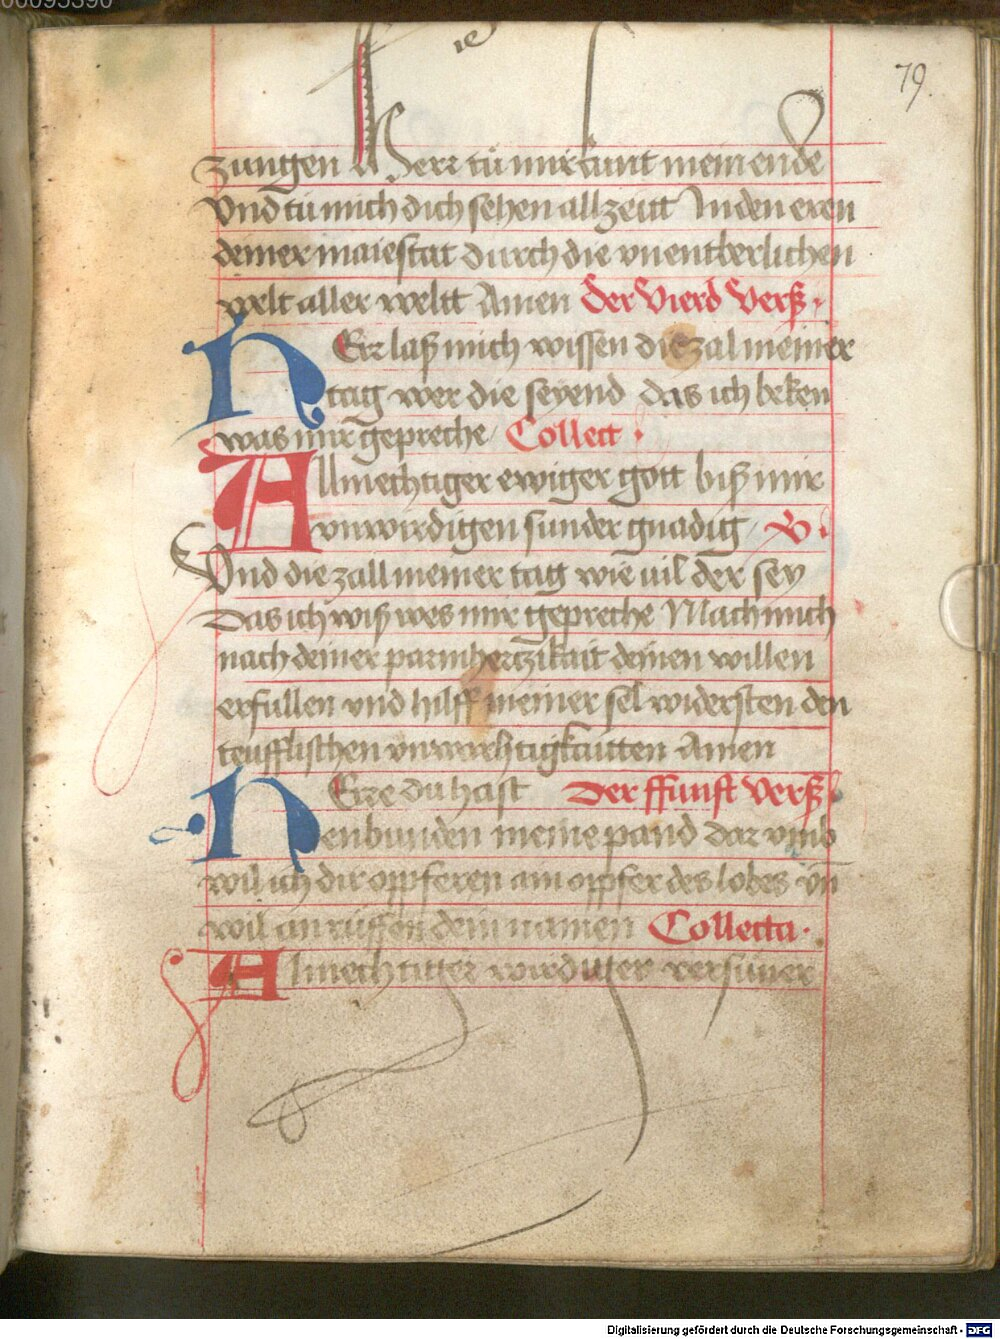 00095390
79.
zungen Herr tü mir kunt mein ende
Vnd tü mich dich sehen allzeitt In den eren
deiner maiestat durch die vnentberlichen
welt aller weltt Amen Der Vierd Verß.
HErr laß mich wissen die zal meiner
tag wer die seyend das ich beken
was mir gepreche Collect.
Allmechtiger ewiger gott biß mir
vnwirdigen sunder gnadig
Vnd die zall meiner tag wie uil der sey
Das ich wiß wes mir gepreche Mach mich
nach deiner parmhertzikait deinen willen
erfullen vnd hilff meiner sel widersten den
teufflischen Amen
HErre du hast Der ffunft Verß
enbunden meine pand dar vmb
wil ich dir oppferen ain oppfer des lobes vn̄
wil an rüffen dein namen Collecta.
Almechtiger versüner
Digitalisierung gefördert durch die Deutsche Forschungsgemeinschaft - DFG